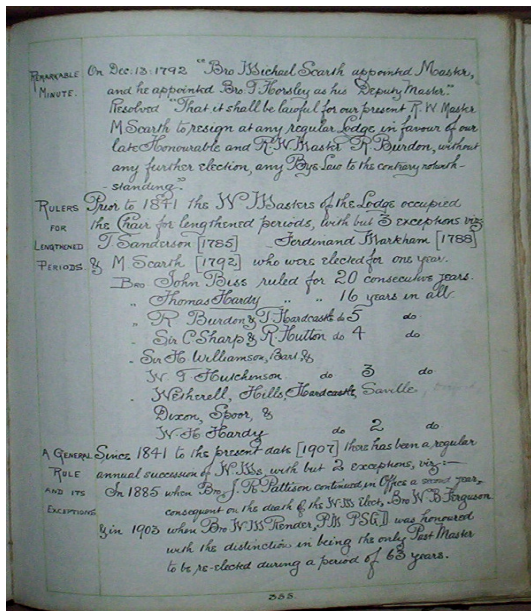 REMARKABLE MINUTE.
On Dec: 13: 1792 "Bro Michael Scarth appointed Master,
and he appointed Bro. T Horsley as his Deputy Master".
Resolved "That it shall be lawful for our present R. W Master
M Scarth to resign at any regular Lodge, in favour of our
late Honourable and R. W Master R. Burdon, without
any further election, any Bye Law to the contrary notwith-
standing-"
RULERS FOR LENGTHENED PERIODS
Prior to 1841 the W Masters of the Lodge occupied
the Chair for lengthened periods, with but 3 exceptions viz
T Sanderson [1785] Ferdinand Markham [1788]
& M. Scarth [1792] who were elected for one year.
Bro John Biss ruled for 20 consecutive years.
" Thomas Hardy " " 16 years in all.
" R Burdon & T Hardcastle do 5 do
" Sir C. Sharp & R. Hutton do 4 do
" Sir H Williamson, Bart, &
W. T. Hutchinson do 3 do
" Wetherell, Hills, Hardcastle, Saville
Dixon, Spoor, &
W. H. Hardy do 2 do
A GENERAL RULE AND ITS EXCEPTIONS
Since 1841 to the present date [1907] there has been a regular
annual succession of W. Ms, with but 2 exceptions, viz:—
In 1885 when Bro. J. R Pattison continued in Office a second year,
consequent on the death of the W. M Elect, Bro W. B. Ferguson
& in 1903 when Bro W. M Render, P.M P.S.G.D was honoured
with the distinction in being the only Past Master
to be re-elected during a period of 63 years.